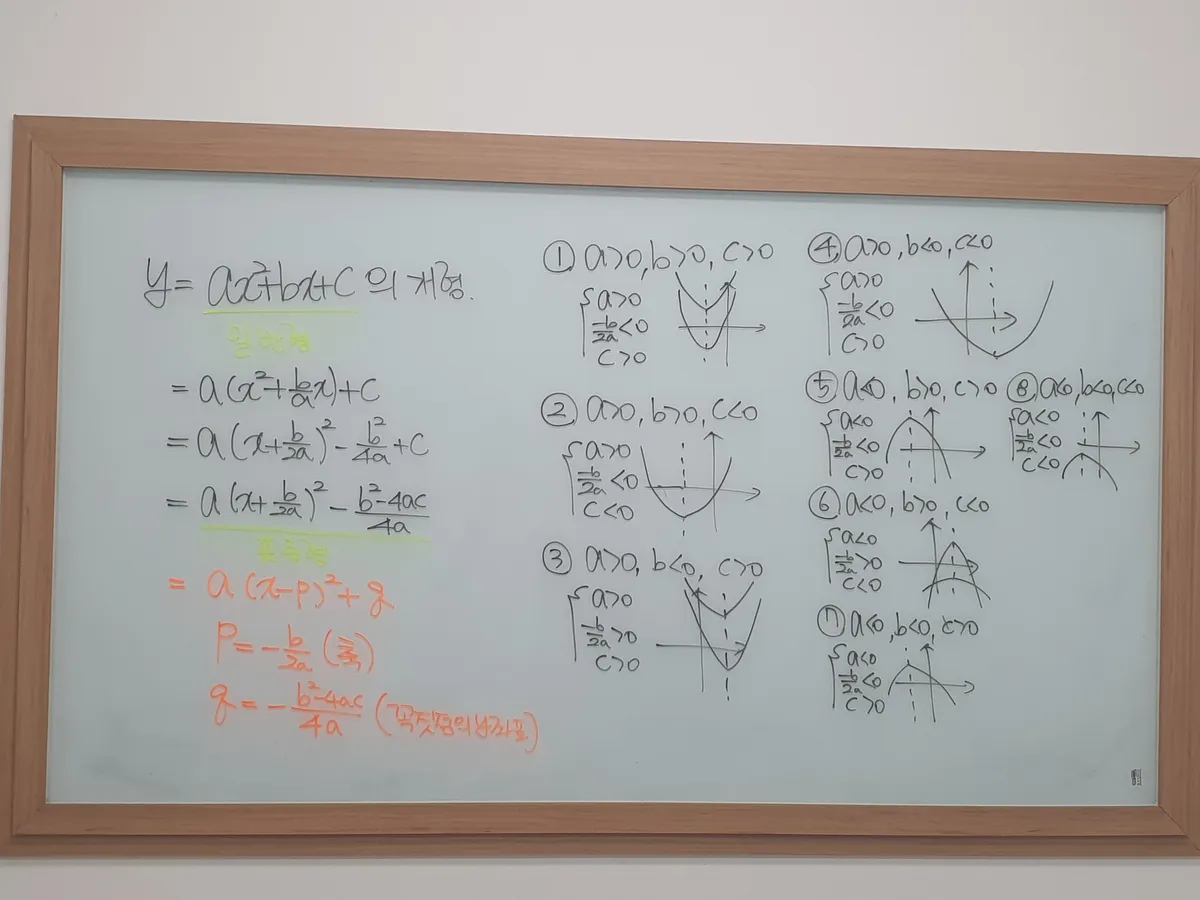 y = ax²+bx+c 의 개형.
일반형
= a(x²+b/a x)+c
= a(x+b/2a)² - b²/4a +c
= a(x+b/2a)² - b²-4ac/4a
표준형
= a(x-p)²+q
p=-b/2a (축)
q=-b²-4ac/4a (꼭짓점의 y좌표)
① a>0, b>0, c>0
a>0
-b/2a<0
c>0
② a>0, b>0, c<0
a>0
-b/2a<0
c<0
③ a>0, b<0, c>0
a>0
-b/2a>0
c>0
④ a>0, b<0, c<0
a>0
-b/2a<0
c>0
⑤ a<0, b>0, c>0
a<0
-b/2a<0
c>0
⑥ a<0, b>0, c<0
a<0
-b/2a>0
c<0
⑦ a<0, b<0, c>0
a<0
-b/2a<0
c>0
⑧ a<0, b<0, c<0
a<0
-b/2a<0
c<0